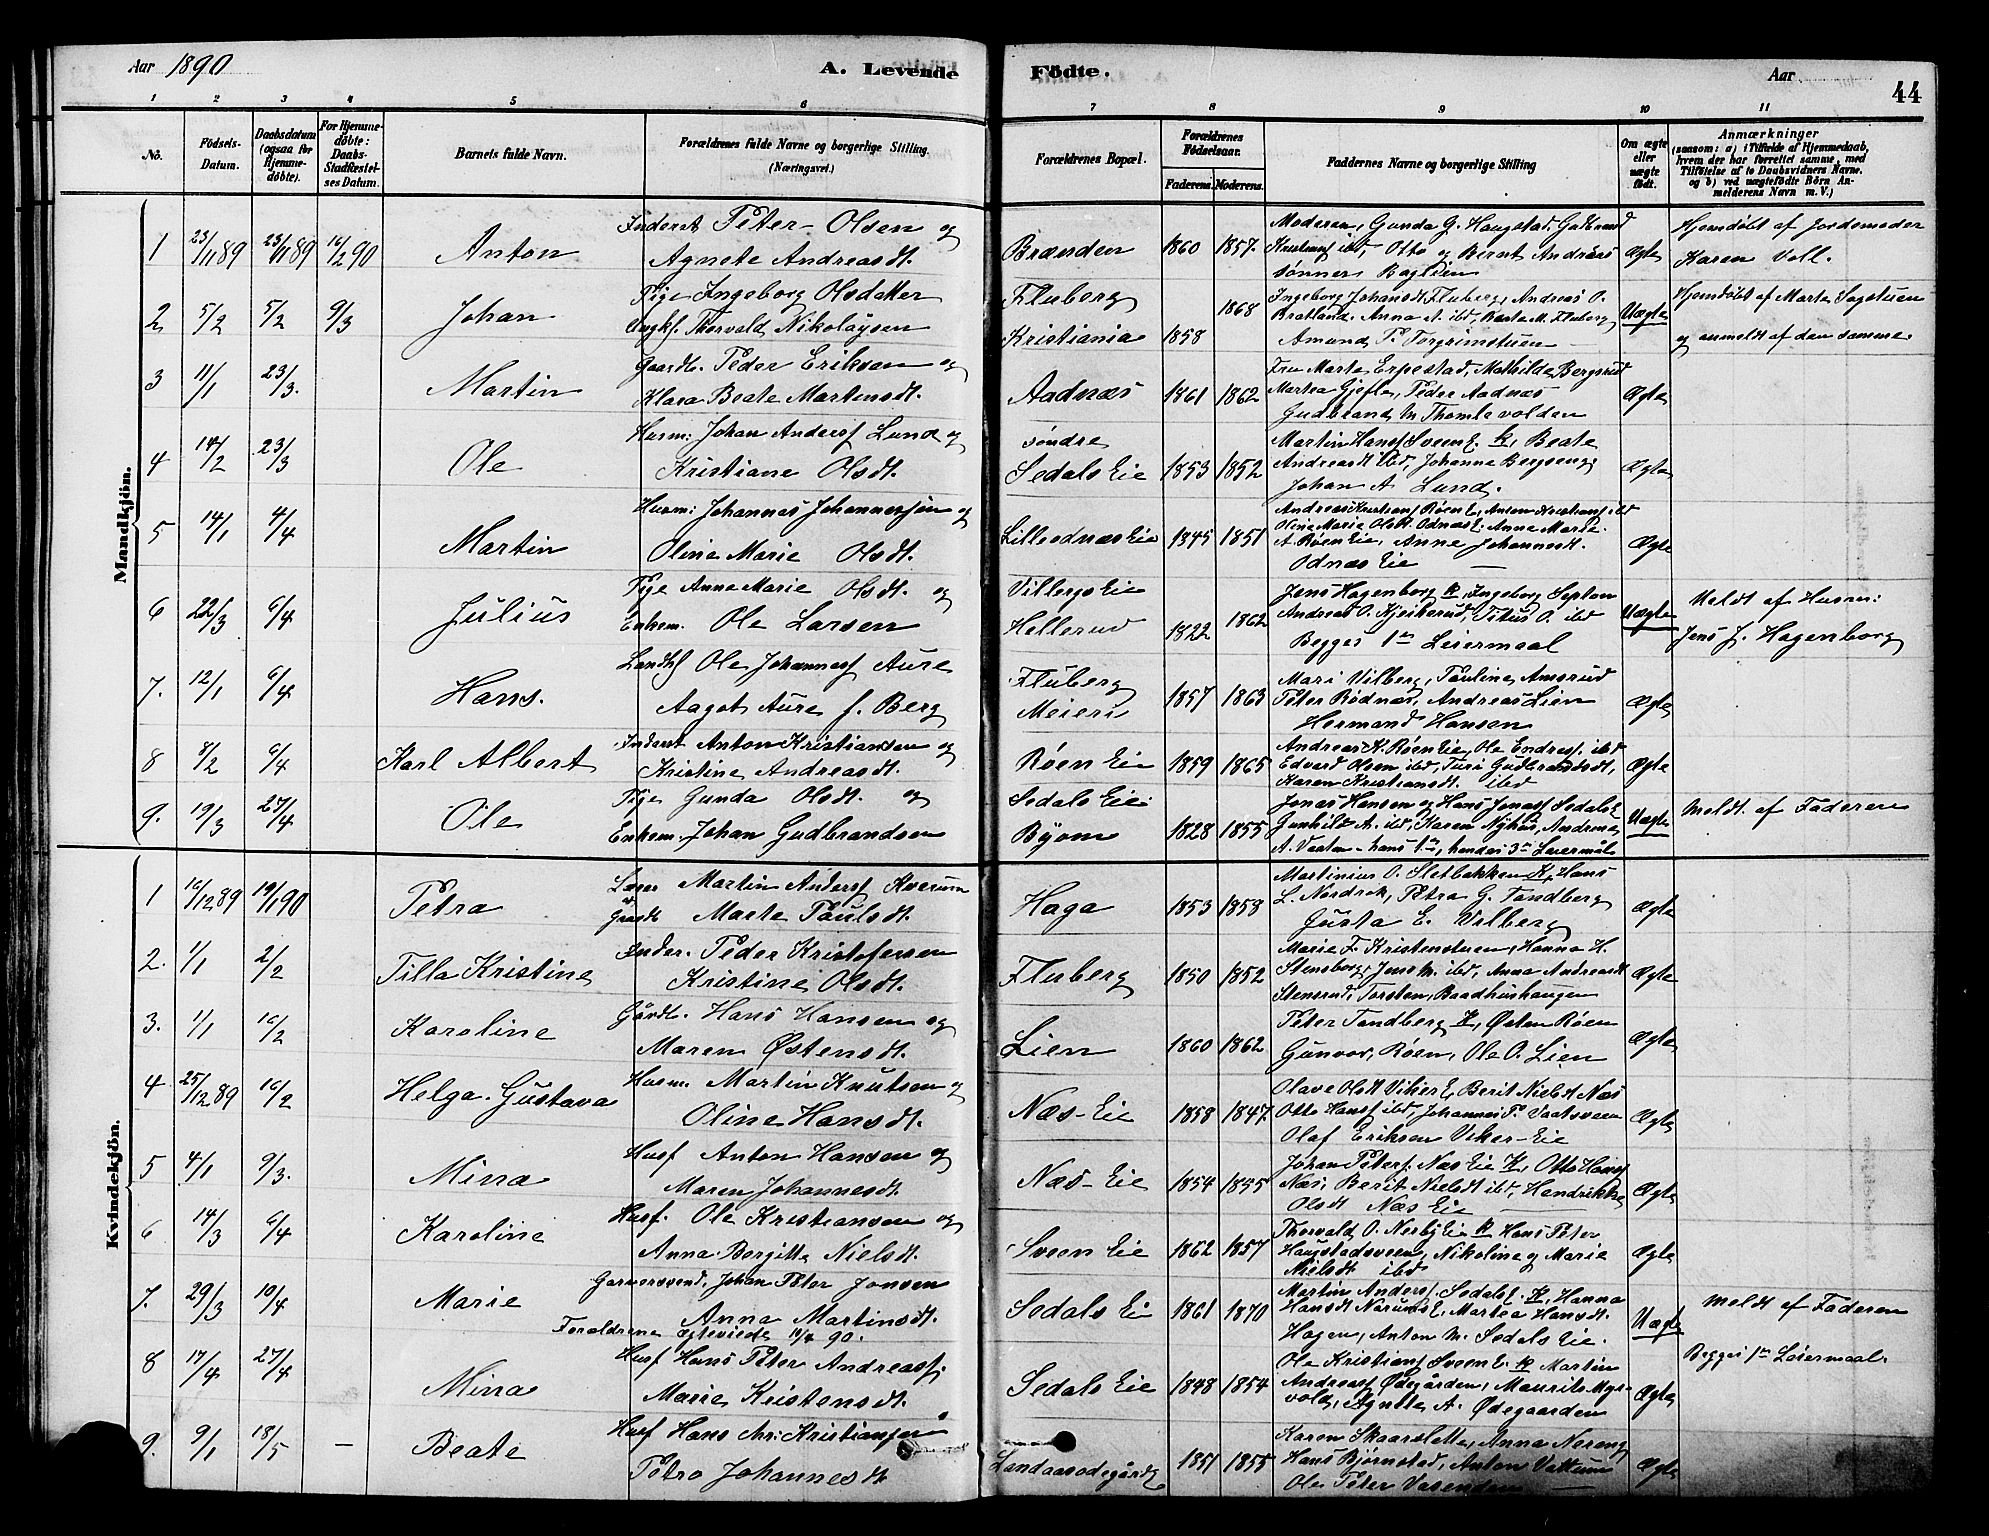 Aar 1890 A. Levende Födte. Aar 44
1 2 3 4 5 6 7 8 9 10 11
No. Födsels-Datum. Daabsdatum (ogsaa for Hjemme-döbte). For Hjemme-döbte: Daabs-Stadfæstel-ses Datum. Barnets fulde Navn. Forældrenes fulde Navne og borgerlige Stilling. (Næringsvei.) Forældrenes Bopæl. Forældrenes Födselsaar. Faderens. Moderens. Faddernes Navne og borgerlige Stilling Om ægte eller uægte födt. Anmærkninger (saasom: a) i Tilfælde af Hjemmedaab, hvem der har forrettet samme, med Tilföielse af to Daabsvidners Navne. og b) ved uægtefödte Börn An-melderens Navn m. V.)
Mandkjön.
1 23/11 89 23/11 89 16/2 90 Anton Inderst Peter Olsen og
Agnete Andreasdt. Brænden 1860 1857. Moderen, Gunda G. Haugstad, Gudbrand
Kristiansf ibd, Otto og Bernt Andreas
sønner Baglien Ægte Hjemdøbt af Jordemoder
Karen Voll.
2 5/2 5/2 9/3 Johan Pige Ingeborg Olsdatter
Ungkf. Thorvald Nikolaysen Fluberg
Kristiania 1858 1868 Ingeborg Johansdt Fluberg, Andreas O.
Bratland. Anna A. ibd, Berte M. Fluberg
Amund P. Torgrimstuen Uægte Hjemdøbt af Marte Sagstuen
og anmeldt af den samme.
3 11/1 23/3. Martin Gaardb. Peder Eriksen og
Klara Beate Martensdt. Aadnæs 1861 1862 Fru Marte Erpestad, Mathilde Bergsrud
Martea Gjefle, Peder Aadnæs
Gudbrand M. Thomlevolden Ægte
4 14/2 23/3 Ole Husm: Johan Andersf Lund og
Kristiane Olsdt. søndre
Sedals Eie 1853 1852 Martin Hansf Sveen E. K, Beate
Andreasdt ibd, Johanna Bergseng,
Johan A. Lund. Ægte
5 14/1 4/4 Martin Husm: Johannes Johannessøn og
Oline Marie Olsdt. Lilleodnæs Eie 1845 1851 Andreas Kristiansf Røen E, Anton Kristiansf ibd
Oline Marie Olsdt. Odnæs E. Anna Marie
A. Røen Eie, Anne Johannesdt.
Odnæs Eie Ægte
6 22/3 6/4 Julius Pige Anne Marie Olsdt. og
Enkem. Ole Larsen Villergs Eie
Hellerud 1822 1862 Jens Hagenborg K, Ingeborg Septon
Andreas O. Kjeikerud, Titus O. ibd
Begges 1ste Leiermaal Uægte Meldt af Husm:
Jens J. Hagenborg
7. 12/1 6/4 Hans. Landhf Ole Johannesf Aure
Aagot Aure f. Berg Fluberg
Meieri 1857 1863 Mari Vilberg, Pauline Amsrud
Peter Rødnæs, Andreas Lien
Hermand Hansen Ægte
8 8/2 6/4 Karl Albert Inderst Anton Kristiansen og
Kristine Andreasdt. Røen Eie 1859 1865 Andreas K. Røen Eie, Ole Endresf. ibd
Edvard Olsen ibd, Turi Gudbrandsdt,
Karen Kristiansdt. ibd Ægte
9. 19/3 27/4 Ole Pige Gunda Olsdt. og
Enkem. Johan Gudbrandsen Sedals Eie
Byom 1828 1855 Jonas Hansen og Hans Jonasf Sedals E
Gunhild A. ibd, Karen Nyhus, Andrine
A. Vaaten - hans 1ste, hendes 3de Leiermål Uægte Meldt af Faderen
Kvindekjön.
1 16/12 89 19/1 90 Petra Læser Martin Andersf Kverum
og Gaardb Marte Paulsdt. Haga 1853 1858 Martinius O. Sletbakken K, Hans
L. Nordrak, Petra G. Tandberg
Gusta E. Vilberg Ægte
2. 1/1 2/2 Tilla Kristine Inder. Peder Kristofersen
Kristine Olsdt. Fluberg 1850 1852 Marie F. Kristenstuen, Hanna H.
Stensborg, Jens M. ibd, Anna Andreasdt
Stensrud, Torsten Baadhushaugen Ægte
3. 1/1 16/2 Karoline Gårdb. Hans Hansen og
Maren Østensdt. Lien 1860 1862 Peter Tandberg K, Østen Røen
Gunvor, Røen, Ole O. Lien Ægte
4 25/12 89 16/2 Helga Gustava Husm: Martin Knutsen og
Oline Hansdt. Næs-Eie 1858 1847. Olave Olsdt Viker E, Berit Nielsdt Næs
Otto Hansf ibd, Johannes P. Vaatsveen
Olaf Eriksen Viker-Eie Ægte
5 4/1 9/3. Mina Husf Anton Hansen og
Maren Johannesdt. Næs-Eie 1854 1855 Johan Petersf. Næs Eie K, Otto Hansf
Næs, Berit Nielsdt ibd, Hendrikke
Olsdt Næs Eie Ægte
6 14/3 6/4 Karoline Husf. Ole Kristiansen og
Anna Bergitte Nielsdt. Sveen Eie 1862 1857 Thorvald O. Nerby Eie K Hans Peter
Haugstadsveen, Nikoline og Marie
Nielsdt ibd Ægte
7. 29/3 10/4 Marie Garversvend, Johan Peter Jonsen
Anna Martinsdt.
Forældrene ægteviede 10/4 90. Sedals Eie 1861 1870 Martin Andersf. Sedals E. K, Hanna
Hansdt Narum E, Martea Hansdt.
Hagen, Anton M. Sedals Eie. Uægte Meldt af Faderen
Begges 1ste Leiermaal.
8 17/4 27/4 Mina Husf Hans Peter Andreasf
Marie Kristensdt. Sedals Eie 1848 1854 Ole Kristiansf Sveen E. K Martin
Andreasf Ødegården, Maurits Myr-
vold, Agnete A. Ødegaarden Ægte
9. 9/1 18/5 - Beate Husf Hans Chr: Kristiansen
Petra Johannesdt Landaasødegård 1851 1855 Karen Skaarslette, Anna Noreng
Hans Bjørnstad, Anton Vattum
Ole Peter Vasenden Ægte